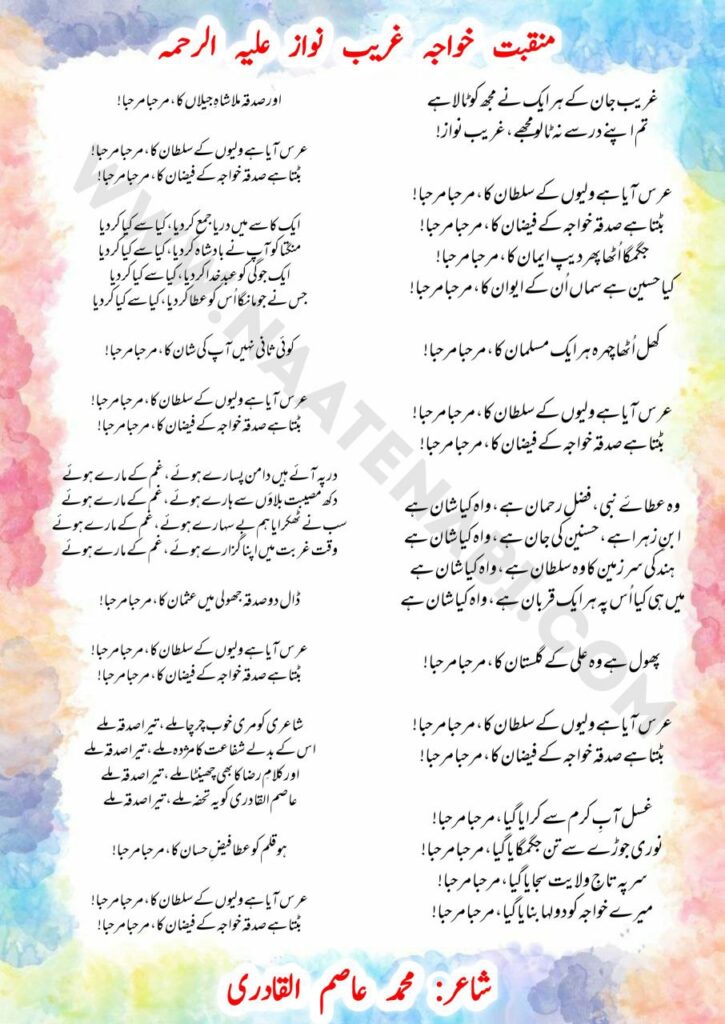 منقبت خواجہ غریب نواز علیہ الرحمہ
غریب جان کے ہر ایک نے مجھ کو ٹالا ہے
تم اپنے در سے نہ ٹالو مجھے، غریب نواز!
عرس آیا ہے ولیوں کے سلطان کا، مرحبا مرحبا!
بٹتا ہے صدقہ خواجہ کے فیضان کا، مرحبا مرحبا!
جگمگا اُٹھا پھر دیپ ایمان کا، مرحبا مرحبا!
کیا حسین ہے سماں اُن کے ایوان کا، مرحبا مرحبا!
کھل اُٹھا چہرہ ہر ایک مسلمان کا، مرحبا مرحبا!
عرس آیا ہے ولیوں کے سلطان کا، مرحبا مرحبا!
بٹتا ہے صدقہ خواجہ کے فیضان کا، مرحبا مرحبا!
وہ عطائے نبی، فضلِ رحمان ہے، واہ کیا شان ہے
ابنِ زہرا ہے، حسنین کی جان ہے، واہ کیا شان ہے
ہند کی سر زمین کا وہ سلطان ہے، واہ کیا شان ہے
میں ہی کیا اُس پہ ہر ایک قربان ہے، واہ کیا شان ہے
پھول ہے وہ علی کے گلستان کا، مرحبا مرحبا!
عرس آیا ہے ولیوں کے سلطان کا، مرحبا مرحبا!
بٹتا ہے صدقہ خواجہ کے فیضان کا، مرحبا مرحبا!
غسل آبِ کرم سے کرایا گیا، مرحبا مرحبا!
نوری جوڑے سے تن جگمگایا گیا، مرحبا مرحبا!
سر پہ تاجِ ولایت سجایا گیا، مرحبا مرحبا!
میرے خواجہ کو دولہا بنایا گیا، مرحبا مرحبا!
اور صدقہ ملا شاہِ جیلاں کا، مرحبا مرحبا!
عرس آیا ہے ولیوں کے سلطان کا، مرحبا مرحبا!
بٹتا ہے صدقہ خواجہ کے فیضان کا، مرحبا مرحبا!
ایک کاسے میں دریا جمع کر دیا، کیا سے کیا کر دیا
منگتا کو آپ نے بادشاہ کر دیا، کیا سے کیا کر دیا
ایک جوگی کو عبدِ خدا کر دیا، کیا سے کیا کر دیا
جس نے جو مانگا اُس کو عطا کر دیا، کیا سے کیا کر دیا
کوئی ثانی نہیں آپ کی شان کا، مرحبا مرحبا!
عرس آیا ہے ولیوں کے سلطان کا، مرحبا مرحبا!
بٹتا ہے صدقہ خواجہ کے فیضان کا، مرحبا مرحبا!
در پہ آئے ہیں دامن پسارے ہوئے، غم کے مارے ہوئے
دکھ مصیبت بلاؤں سے ہارے ہوئے، غم کے مارے ہوئے
سب نے ٹھکرایا ہم بے سہارے ہوئے، غم کے مارے ہوئے
وقت غربت میں اپنا گزارے ہوئے، غم کے مارے ہوئے
ڈال دو صدقہ جھولی میں عثمان کا، مرحبا مرحبا!
عرس آیا ہے ولیوں کے سلطان کا، مرحبا مرحبا!
بٹتا ہے صدقہ خواجہ کے فیضان کا، مرحبا مرحبا!
شاعری کو مری خوب چرچا ملے، تیرا صدقہ ملے
اس کے بدلے شفاعت کا مژدہ ملے، تیرا صدقہ ملے
اور کلامِ رضا کا بھی چھینٹا ملے، تیرا صدقہ ملے
عاصم القادری کو یہ تحفہ ملے، تیرا صدقہ ملے
ہو قلم کو عطا فیضِ حسان کا، مرحبا مرحبا!
عرس آیا ہے ولیوں کے سلطان کا، مرحبا مرحبا!
بٹتا ہے صدقہ خواجہ کے فیضان کا، مرحبا مرحبا!
شاعر: محمد عاصم القادری
WWW.NAATENABI.COM